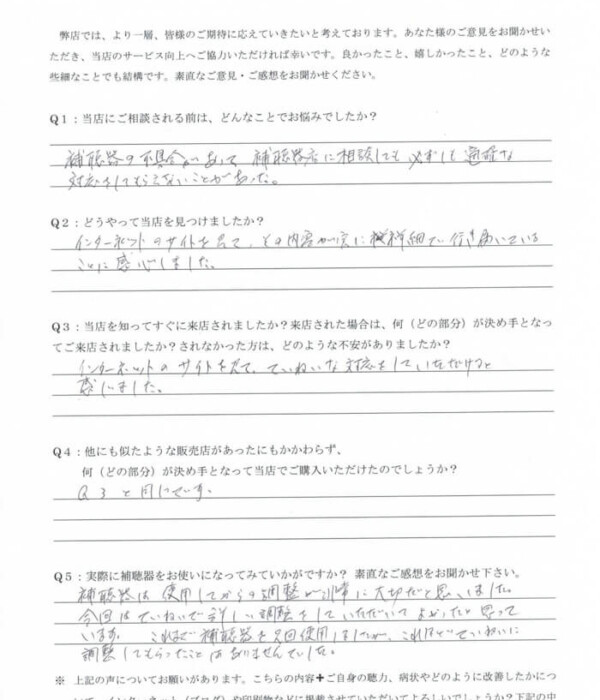 弊店では、より一層、皆様のご期待に応えていきたいと考えております。あなた様のご意見をお聞かせい
ただき、当店のサービス向上へご協力いただければ幸いです。良かったこと、嬉しかったこと、どのような
些細なことでも結構です。素直なご意見・ご感想をお聞かせください。
Q1：当店にご相談される前は、どんなことでお悩みでしたか？
補聴器の不具合があって 補聴器店に相談しても 必ずしも 適確な
対応をしてもらえないことがあった。
Q2：どうやって当店を見つけましたか？
インターネットのサイトを見て、その内容が実に 詳細で 行き届いている
ことに感心しました。
Q3：当店を知ってすぐに来店されましたか？来店された場合は、何（どの部分）が決め手となっ
てご来店されましたか？されなかった方は、どのような不安がありましたか？
インターネットのサイトを見て、ていねいな対応をしていただけると
感じました。
Q4：他にも似たような販売店があったにもかかわらず、
何（どの部分）が決め手となって当店でご購入いただけたのでしょうか？
Q3と同じです。
Q5：実際に補聴器をお使いになってみていかがですか？ 素直なご感想をお聞かせ下さい。
補聴器は 使用してからの調整が非常に大切だと思いました。
今回はていねいで詳しい調整をしていただいてよかったと思って
います。 これまで補聴器を 回使用しましたが、これほどていねいに
調整してもらったことはありませんでした。
※ 上記の声についてお願いがあります。こちらの内容＋ご自身の聴力、病状やどのように改善したかにつ
いて、インターネット（ブログ）や印刷物などに掲載させていただいてよろしいでしょうか？下記の中